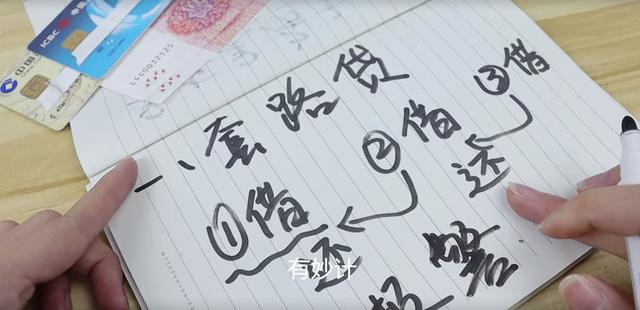 ICBC
中国
L460032525
ATM
一、套路贷
①借
②借
③借
还
还
报警
有妙计